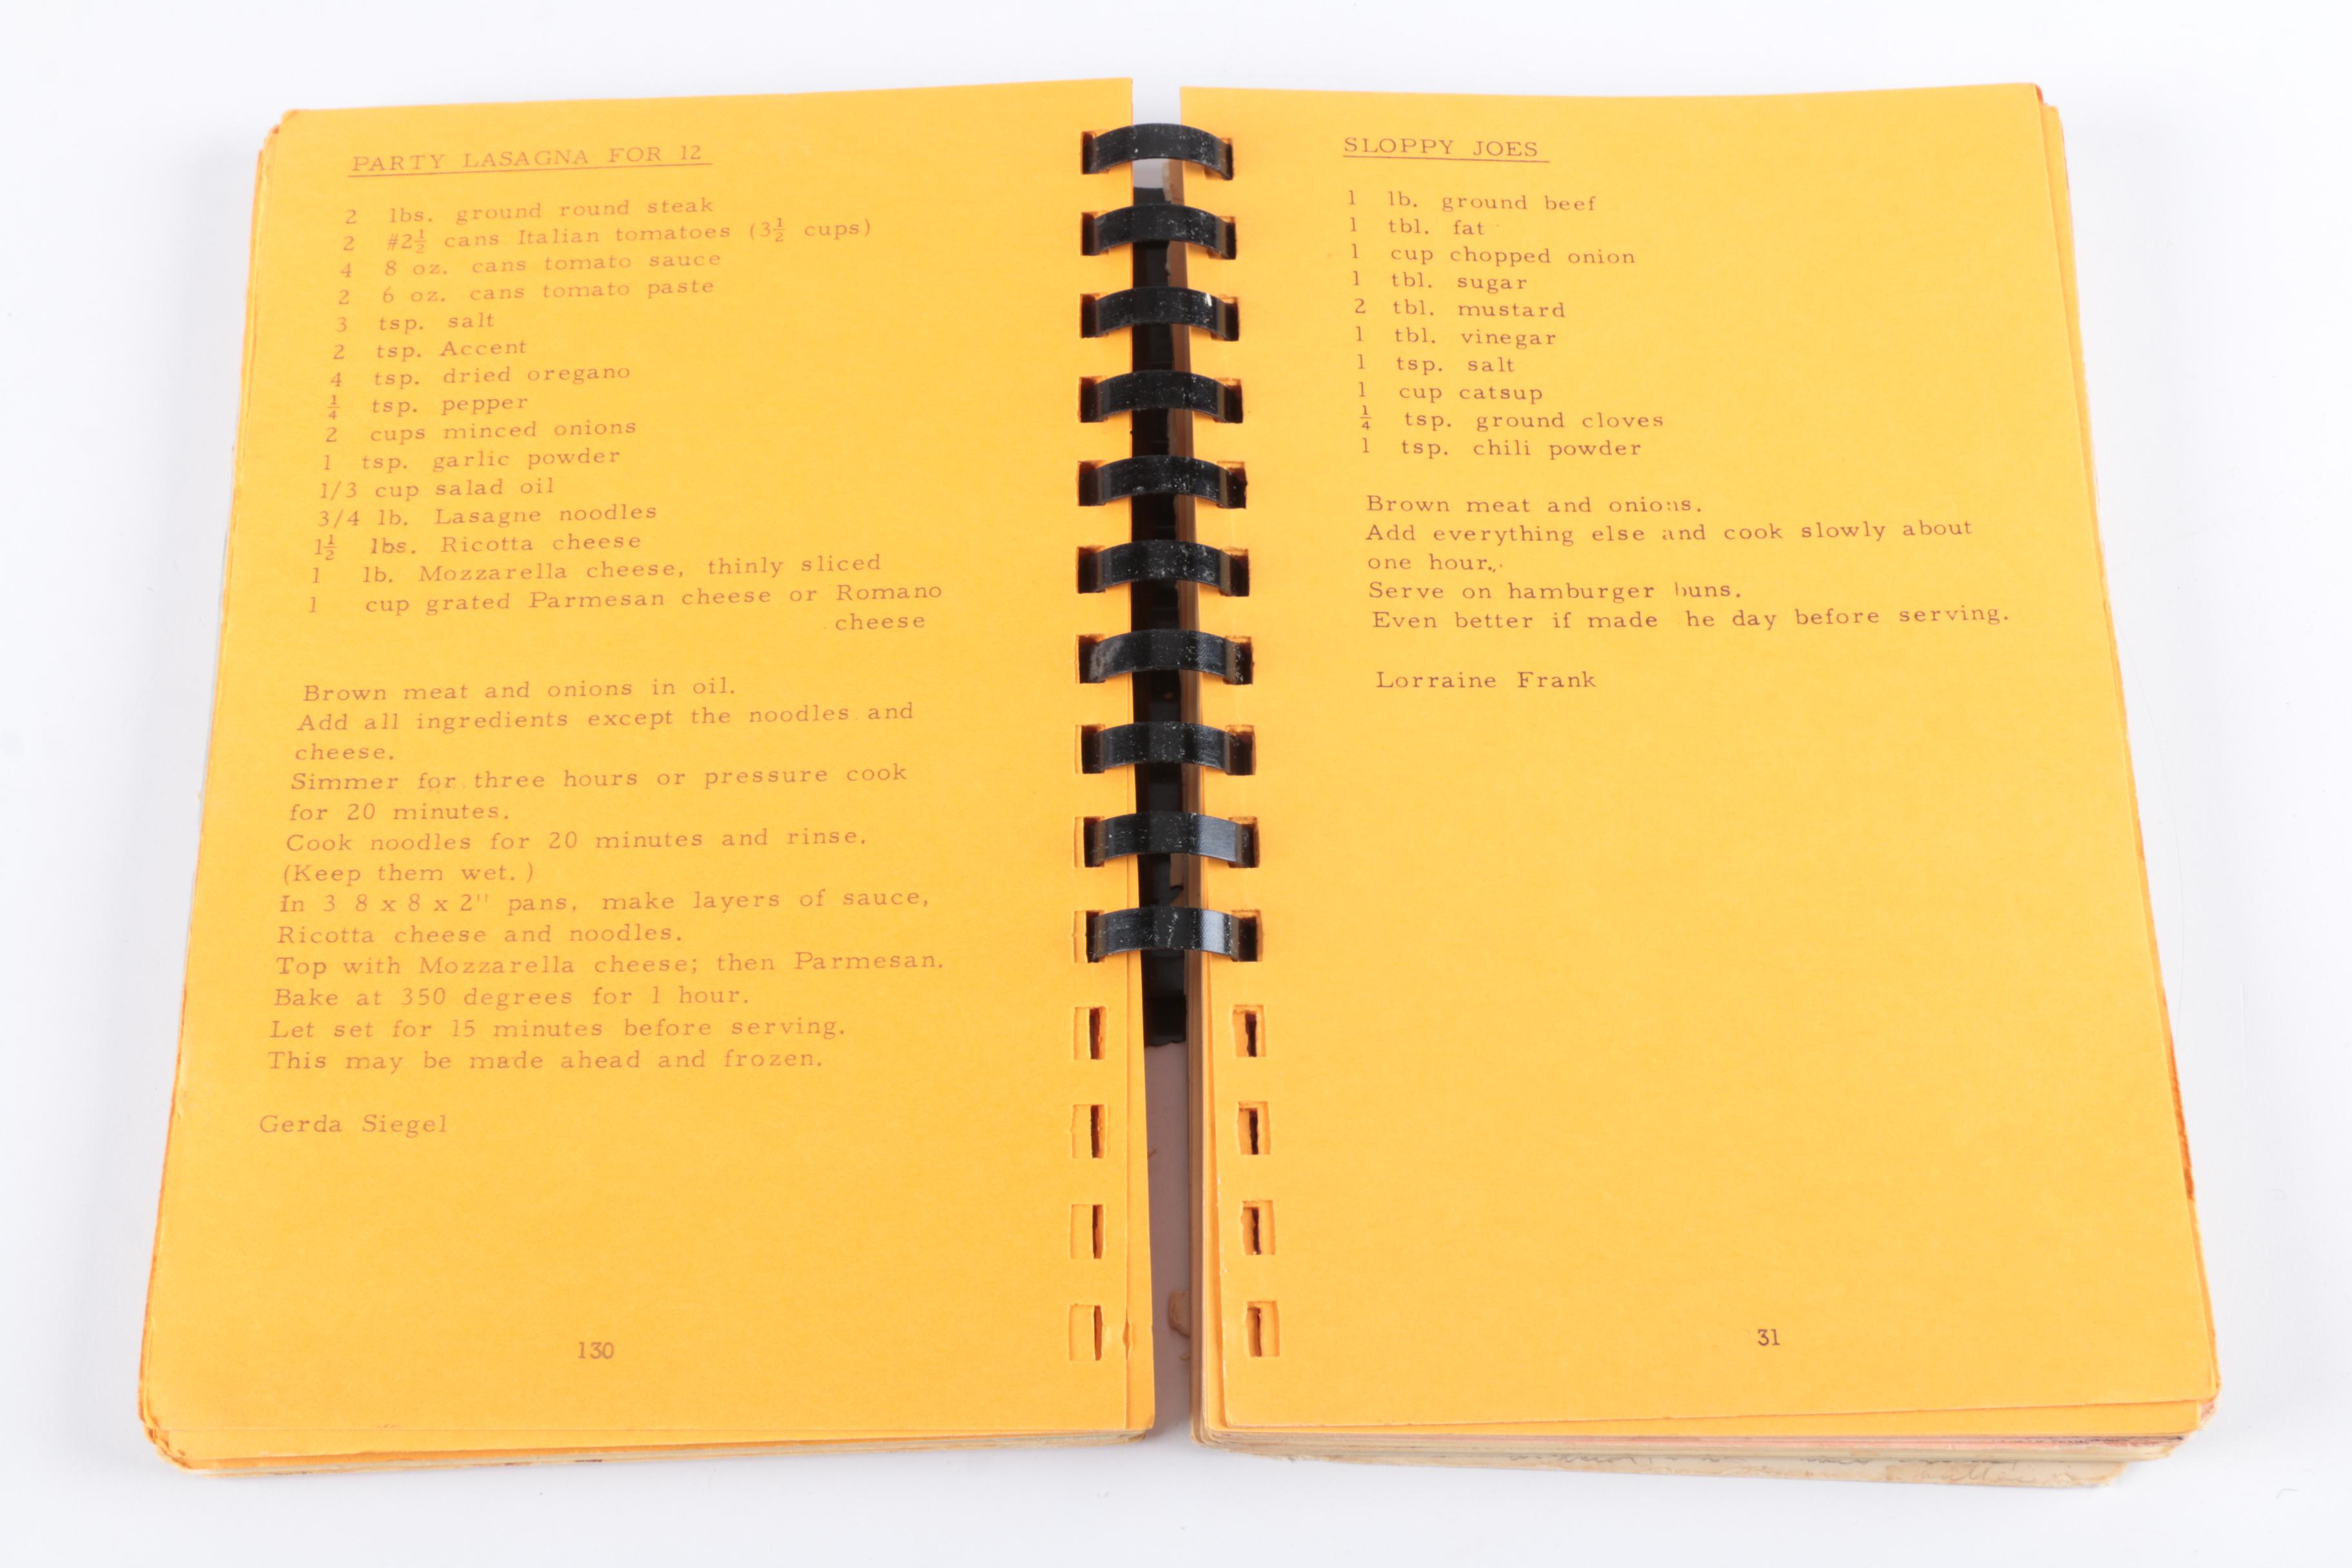 PARTY LASAGNA FOR 12
2 lbs. ground round steak
2 #2½ cans Italian tomatoes (3½ cups)
4 8 oz. cans tomato sauce
2 6 oz. cans tomato paste
3 tsp. salt
2 tsp. Accent
4 tsp. dried oregano
¼ tsp. pepper
2 cups minced onions
1 tsp. garlic powder
1/3 cup salad oil
3/4 lb. Lasagne noodles
1½ lbs. Ricotta cheese
1 lb. Mozzarella cheese, thinly sliced
1 cup grated Parmesan cheese or Romano
cheese
Brown meat and onions in oil.
Add all ingredients except the noodles and
cheese.
Simmer for three hours or pressure cook
for 20 minutes.
Cook noodles for 20 minutes and rinse.
(Keep them wet. )
In 3 8 x 8 x 2" pans, make layers of sauce,
Ricotta cheese and noodles.
Top with Mozzarella cheese; then Parmesan.
Bake at 350 degrees for 1 hour.
Let set for 15 minutes before serving.
This may be made ahead and frozen.
Gerda Siegel
130
SLOPPY JOES
1 lb. ground beef
1 tbl. fat
1 cup chopped onion
1 tbl. sugar
2 tbl. mustard
1 tbl. vinegar
1 tsp. salt
1 cup catsup
¼ tsp. ground cloves
1 tsp. chili powder
Brown meat and onions.
Add everything else and cook slowly about
one hour.
Serve on hamburger buns.
Even better if made he day before serving.
Lorraine Frank
31